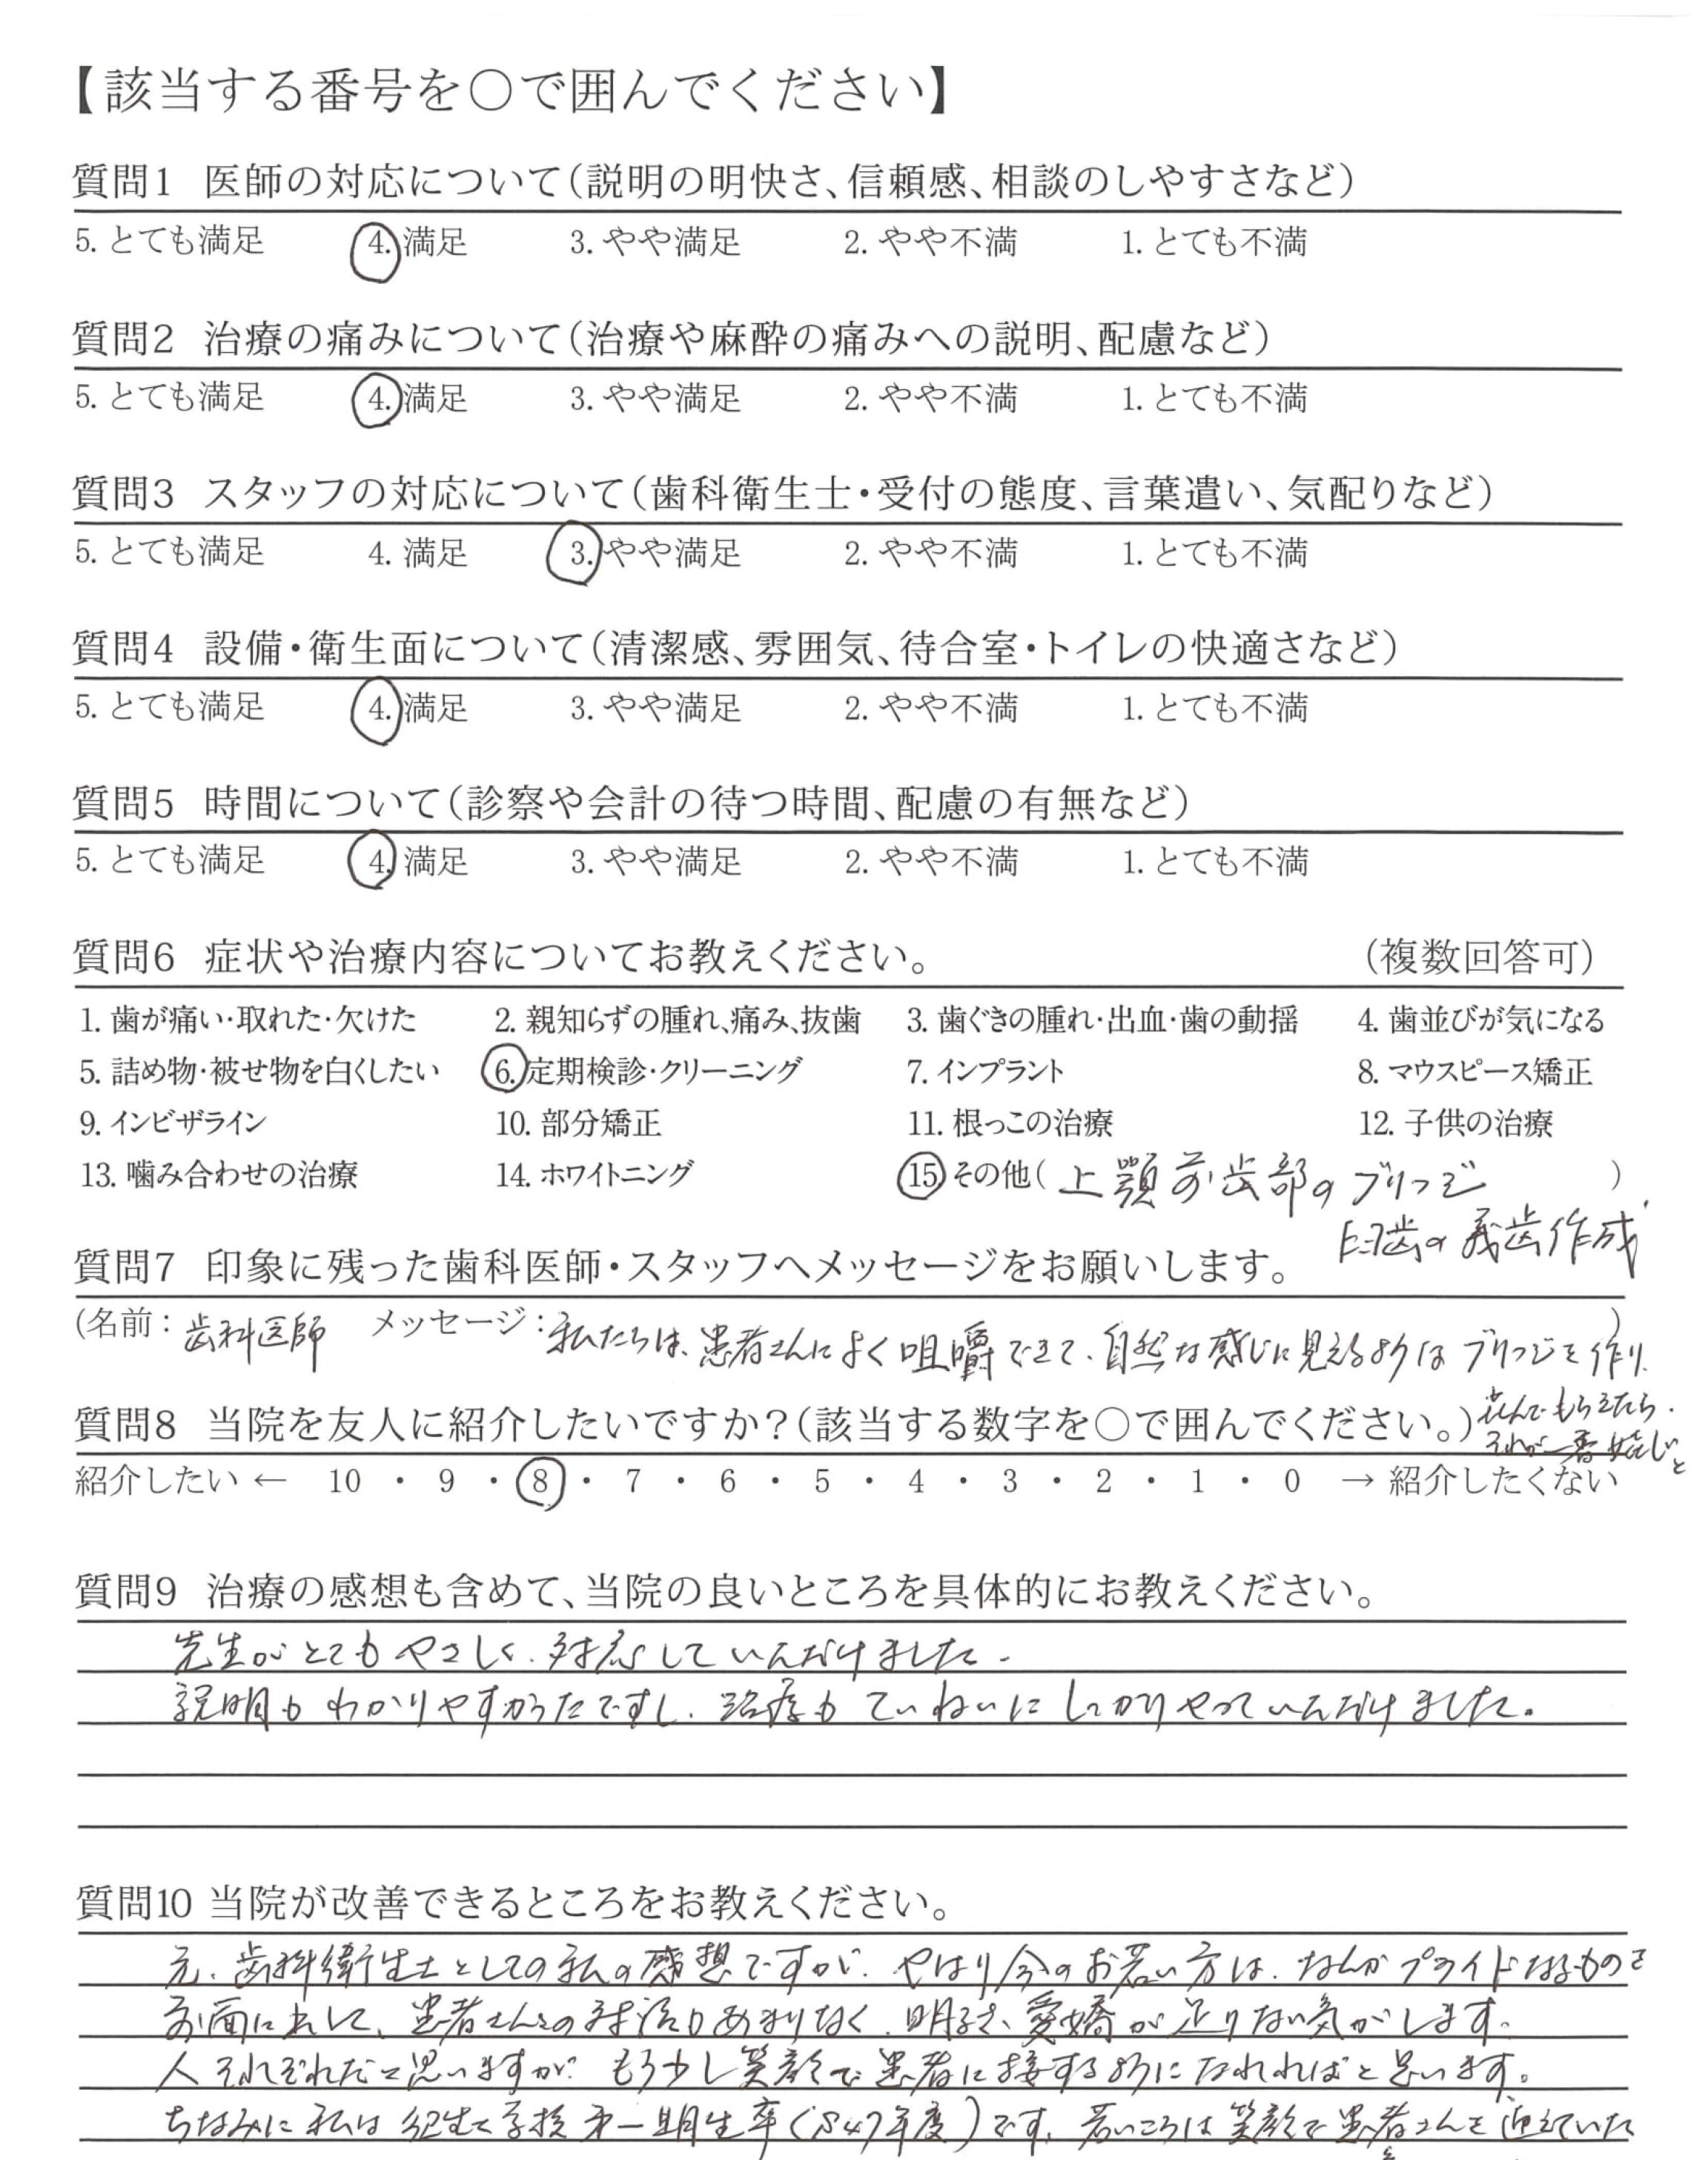 【該当する番号を〇で囲んでください】
質問1 医師の対応について(説明の明快さ、信頼感、相談のしやすさなど)
5. とても満足 4. 満足 3. やや満足 2. やや不満 1. とても不満
質問2 治療の痛みについて(治療や麻酔の痛みへの説明、配慮など)
5. とても満足 4. 満足 3. やや満足 2. やや不満 1. とても不満
質問3 スタッフの対応について(歯科衛生士・受付の態度、言葉遣い、気配りなど)
5. とても満足 4. 満足 3. やや満足 2. やや不満 1. とても不満
質問4 設備・衛生面について(清潔感、雰囲気、待合室・トイレの快適さなど)
5. とても満足 4. 満足 3. やや満足 2. やや不満 1. とても不満
質問5 時間について(診察や会計の待つ時間、配慮の有無など)
5. とても満足 4. 満足 3. やや満足 2. やや不満 1. とても不満
質問6 症状や治療内容についてお教えください。 (複数回答可)
1. 歯が痛い・取れた・欠けた 2. 親知らずの腫れ、痛み、抜歯 3. 歯ぐきの腫れ・出血・歯の動揺 4. 歯並びが気になる
5. 詰め物・被せ物を白くしたい 6. 定期検診・クリーニング 7. インプラント 8. マウスピース矯正
9. インビザライン 10. 部分矯正 11. 根っこの治療 12. 子供の治療
13. 噛み合わせの治療 14. ホワイトニング 15. その他( 上顎前歯部のブリッジ )
臼歯の義歯作成
質問7 印象に残った歯科医師・スタッフへメッセージをお願いします。
(名前: 歯科医師 メッセージ: 私たちは、患者さんによく咀嚼できて、自然な感じに見えるようなブリッジを作り、 )
喜んでもらえたら、
それが一番嬉しいと
質問8 当院を友人に紹介したいですか?(該当する数字を〇で囲んでください。)
紹介したい ← 10 ・ 9 ・ 8 ・ 7 ・ 6 ・ 5 ・ 4 ・ 3 ・ 2 ・ 1 ・ 0 → 紹介したくない
質問9 治療の感想も含めて、当院の良いところを具体的にお教えください。
先生がとてもやさしく、対応していただけました。
説明もわかりやすかったですし、治療もていねいにしっかりやっていただけました。
質問10 当院が改善できるところをお教えください。
元、歯科衛生士としての私の感想ですが、やはり今のお若い方は、なんかプライドなるものを
前面に出して、患者さんとの対話があまりなく、明るさ、愛嬌が足りない気がします。
人それぞれだと思いますが、もう少し笑顔で患者に接するようになれればと思います。
ちなみに私は 学校第一期生卒(S47年度)です。若いころは笑顔で患者さんを迎えていた